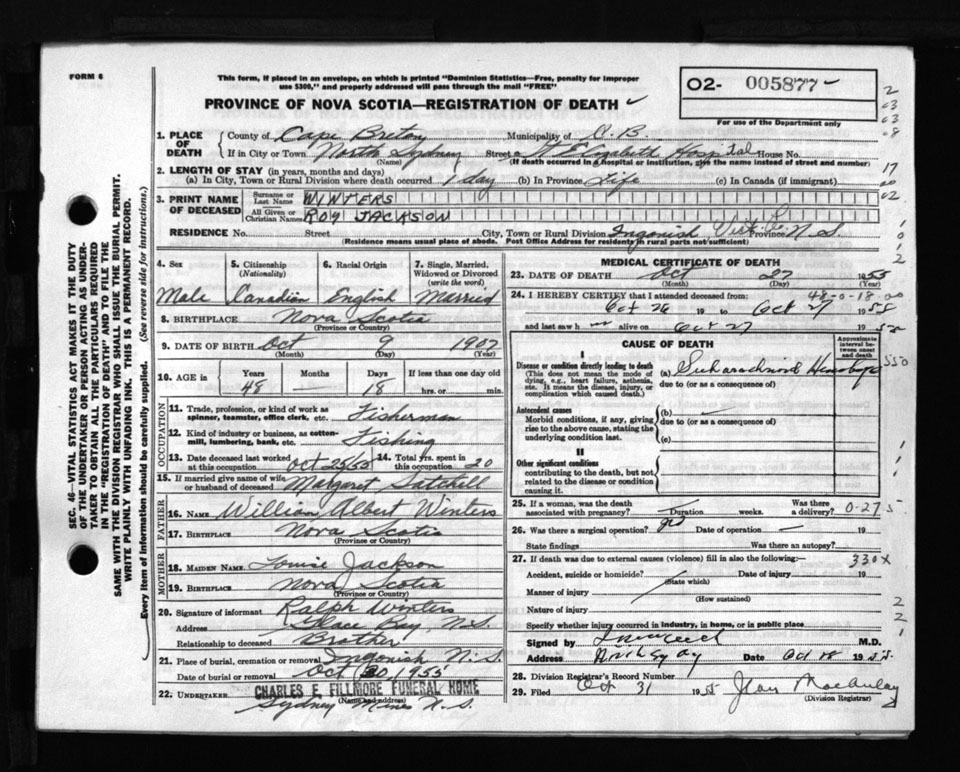 FORM 6
This form, if placed in an envelope, on which is printed "Dominion Statistics—Free, penalty for improper
use $300," and properly addressed will pass through the mail "FREE"
PROVINCE OF NOVA SCOTIA—REGISTRATION OF DEATH
O2- 005877
For use of the Department only
1. PLACE OF DEATH
County of Cape Breton Municipality of C.B.
If in City or Town North Sydney Street St Elizabeth Hospital House No.
(Name) (If death occurred in a hospital or institution, give the name instead of street and number)
2. LENGTH OF STAY (in years, months and days)
(a) In City, Town or Rural Division where death occurred 1 day (b) In Province Life (c) In Canada (if immigrant)
3. PRINT NAME OF DECEASED
Surname or Last Name WINTERS
All Given or Christian Names ROY JACKSON
RESIDENCE No. Street City, Town or Rural Division Ingonish Vict Co Province N.S.
(Residence means usual place of abode. Post Office Address for residents in rural parts not sufficient)
4. Sex Male
5. Citizenship (Nationality) Canadian
6. Racial Origin English
7. Single, Married, Widowed or Divorced (write the word) Married
8. BIRTHPLACE Nova Scotia
(Province or Country)
9. DATE OF BIRTH Oct 9 1907
(Month) (Day) (Year)
10. AGE in Years Months Days If less than one day old
48 18 hrs. or min.
OCCUPATION
11. Trade, profession, or kind of work as
spinner, teamster, office clerk, etc. Fisherman
12. Kind of industry or business, as cotton-
mill, lumbering, bank, etc. Fishing
13. Date deceased last worked at this occupation Oct 25/55 14. Total yrs. spent in this occupation 20
15. If married give name of wife or husband of deceased Margaret
FATHER
16. NAME William Albert Winters
17. BIRTHPLACE Nova Scotia
(Province or Country)
MOTHER
18. MAIDEN NAME Louise Jackson
19. BIRTHPLACE Nova Scotia
(Province or Country)
20. Signature of informant Ralph Winters
Address Glace Bay, N.S.
Relationship to deceased Brother
21. Place of burial, cremation or removal Ingonish N.S.
Date of burial or removal Oct 30 1955
22. UNDERTAKER CHARLES E. FILLMORE FUNERAL HOME
(Name and address)
Sydney Mines N.S.
MEDICAL CERTIFICATE OF DEATH
23. DATE OF DEATH Oct 27 1955
(Month) (Day) (Year)
48-0-18
24. I HEREBY CERTIFY that I attended deceased from:
Oct 26 19 to Oct 27 1955
and last saw h alive on Oct 27 19
CAUSE OF DEATH
Approximate interval between onset and death
I
Disease or condition directly leading to death
(This does not mean the mode of
dying, e.g., heart failure, asthenia,
etc. It means the disease, injury, or
complication which caused death.)
(a)
due to (or as a consequence of)
Antecedent causes
Morbid conditions, if any, giving
rise to the above cause, stating the
underlying condition last.
(b)
due to (or as a consequence of)
(c)
II
Other significant conditions
contributing to the death, but not
related to the disease or condition
causing it.
25. If a woman, was the death associated with pregnancy? Duration weeks. Was there a delivery?
26. Was there a surgical operation? Date of operation 19
State findings Was there an autopsy?
27. If death was due to external causes (violence) fill in also the following:— 330X
Accident, suicide or homicide? Date of injury 19
(State which)
Manner of injury
(How sustained)
Nature of injury
Specify whether injury occurred in industry, in home, or in public place
Signed by M.D.
Address Date Oct 1955
28. Division Registrar's Record Number
29. Filed Oct 31 1955 Jean MacAulay
(Division Registrar)
SEC. 46—VITAL STATISTICS ACT MAKES IT THE DUTY
OF THE UNDERTAKER OR PERSON ACTING AS UNDER-
TAKER TO OBTAIN ALL THE PARTICULARS REQUIRED
IN THE "REGISTRATION OF DEATH" AND TO FILE THE
SAME WITH THE DIVISION REGISTRAR WHO SHALL ISSUE THE BURIAL PERMIT.
WRITE PLAINLY WITH UNFADING INK. THIS IS A PERMANENT RECORD.
Every item of information should be carefully supplied. (See reverse side for instructions.)